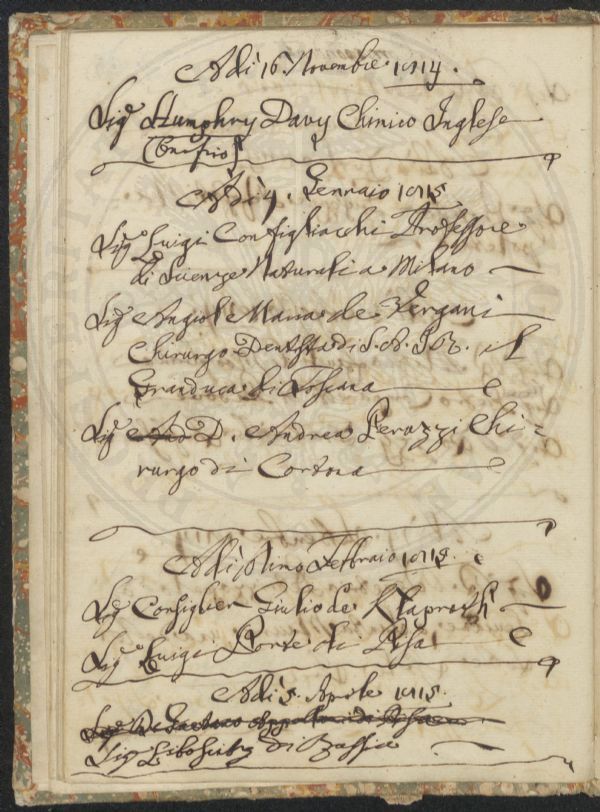 Adì 16. Novembre 1814.
Sigr Humphry Davy Chimico Inglese
(Onofrio)
Adì 4. Gennaio 1815
Sigr Luigi Configliacchi Professore
di Scienze Naturali a Milano
Sigr Angiol Maria de Vergani
Chirurgo Dentista di S. A. I. R. il
Granduca di Toscana
Sigr D. Andrea Perazzi Chi=
rurgo di Cortona
Adì primo Febbraio 1815.
Sigr Consiglier Giulio de Klaproth
Sigr Luigi Porte di Pisa
Adì 5. Aprile 1815.
Sigr
Sigr di